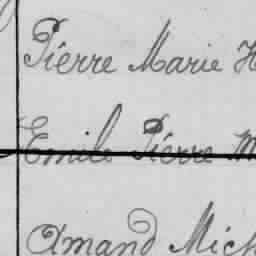 Pierre Marie H
Emile Pierre M
Amand Mich